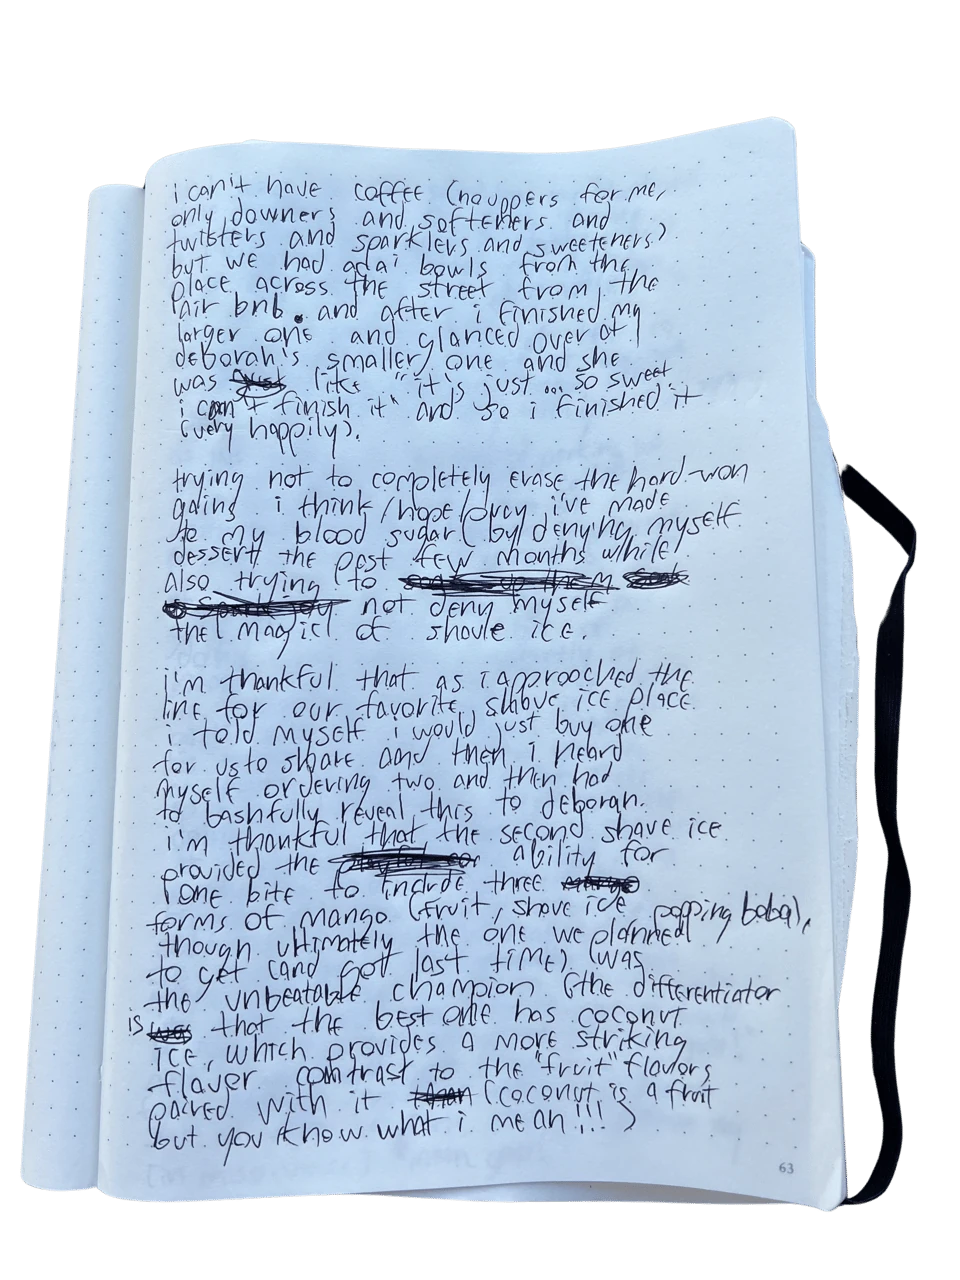 i can't have coffee (no uppers for me,
only downers and softeners and
twisters and sparklers and sweeteners)
but we had acai bowls from the
place across the street from the
air bnb. and after i finished my
larger one and glanced over at
deborah's smaller one and she
was like "it's just ... so sweet
i can't finish it" and so i finished it
(very happily).
trying not to completely erase the hard-won
gains i think/hope/pray i've made
to my blood sugar (by denying myself
dessert) the past few months while
also trying to
not deny myself
the magic of shave ice.
i'm thankful that as i approached the
line for our favorite shave ice place
i told myself i would just buy one
for us to share and then i heard
myself ordering two and then had
to bashfully reveal this to deborah.
i'm thankful that the second shave ice
provided the ability for
one bite to include three
forms of mango (fruit, shave ice, popping boba),
though ultimately the one we planned
to get (and got last time) was
the unbeatable champion (the differentiator
is that the best one has coconut
ice, which provides a more striking
flavor contrast to the "fruit" flavors
paired with it (coconut is a fruit
but you know what i mean!!!)
63